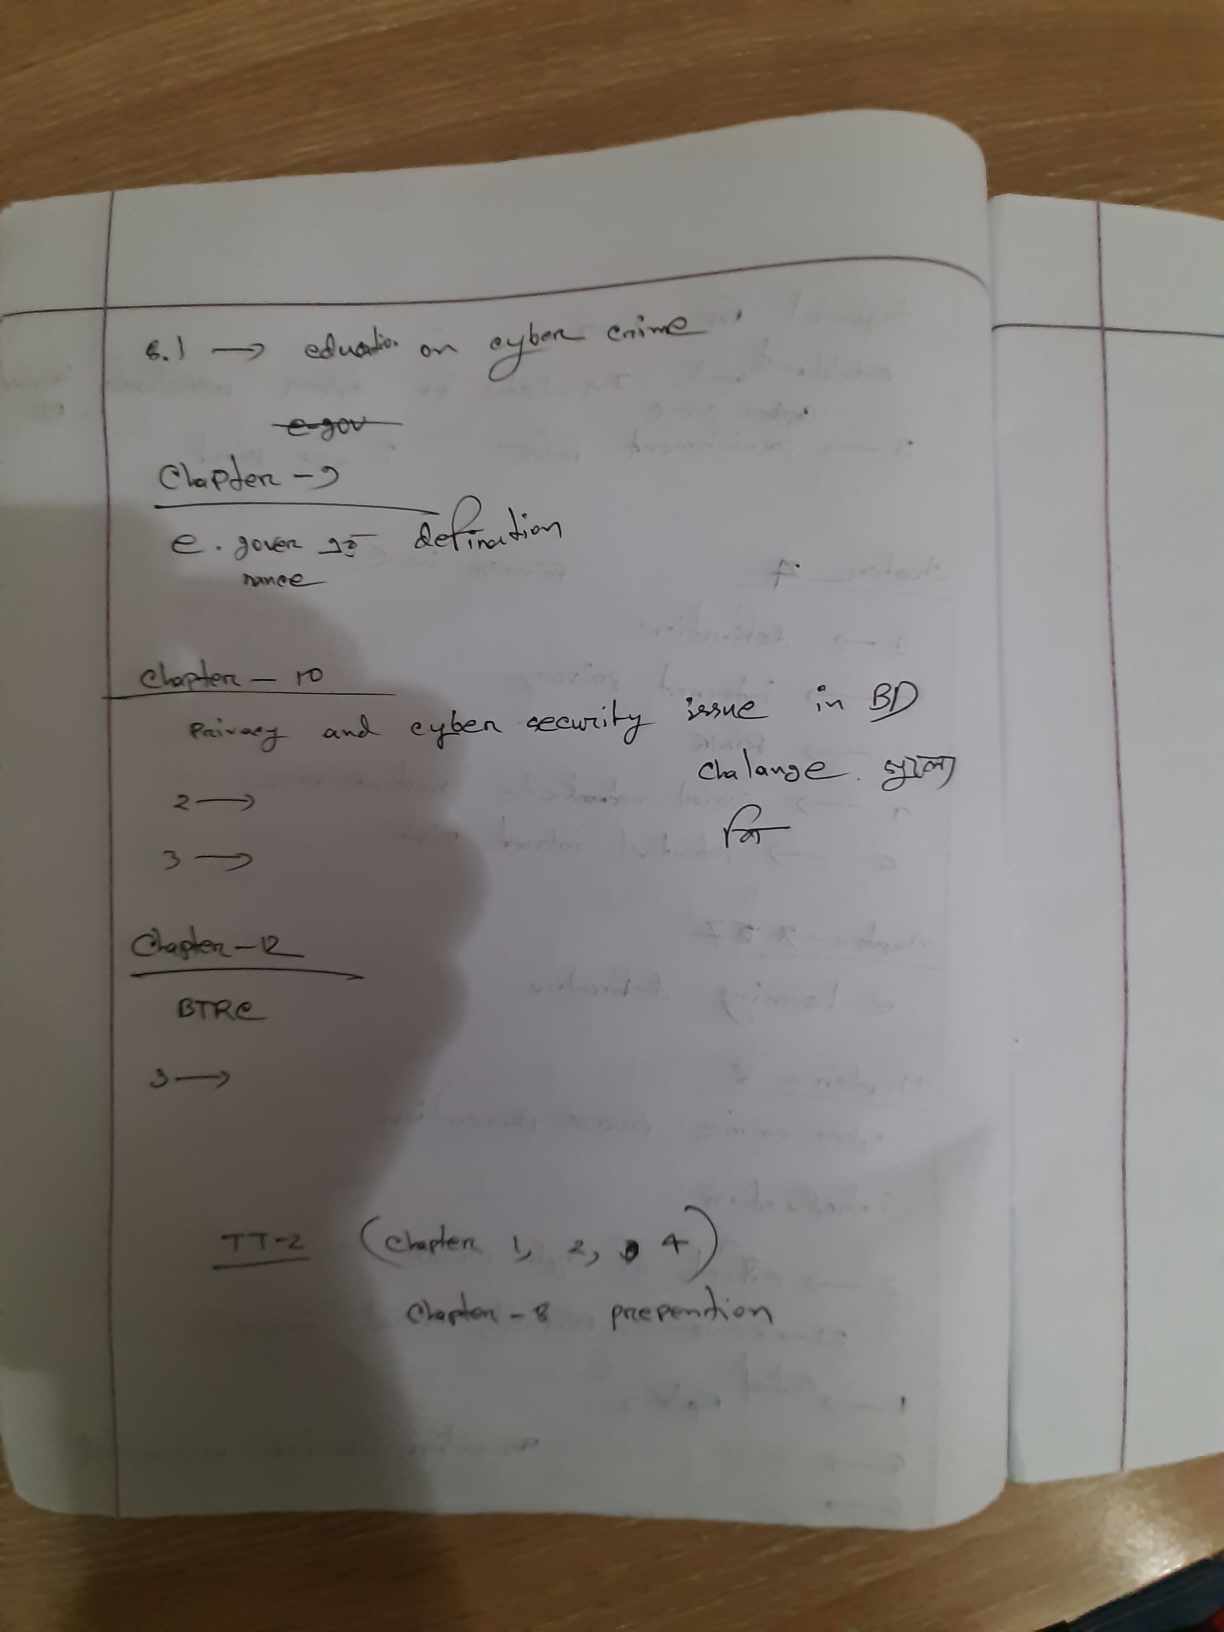 8.1 → eduation on cyber crime
e-gov
Chapter - 9
e. gover এর defination
nance
Chapter - 10
Privacy and cyber security issue in BD
chalange গুলো
কি
2 →
3 →
Chapter - 12
BTRC
3 →
TT-2 (chapter 1, 2, 4)
Chapter - 8 prepention